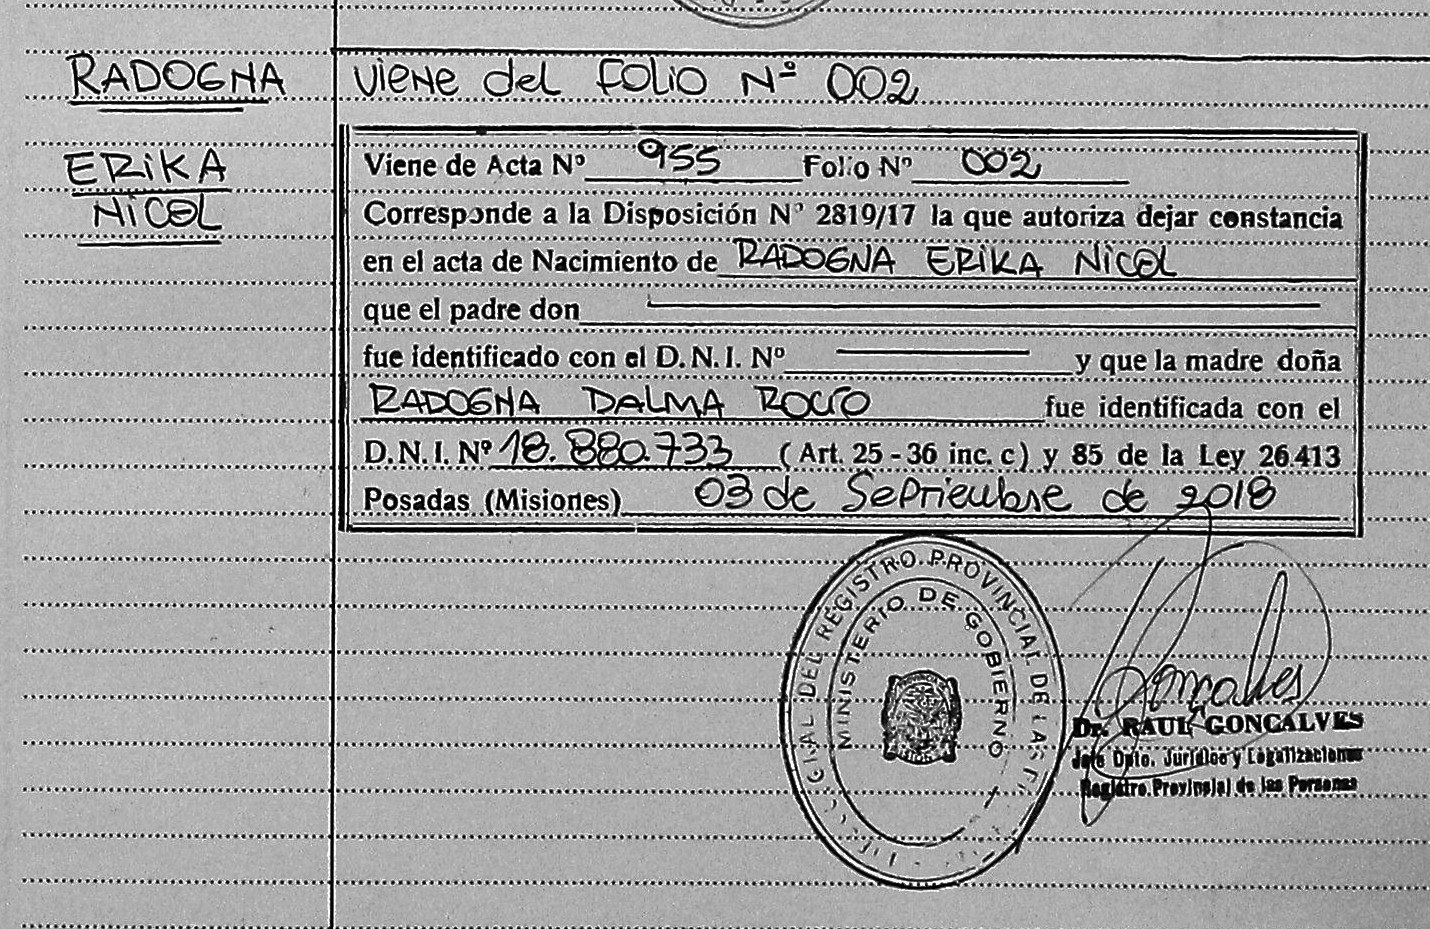 RADOGNA
ERIKA
NICOL
VIENE del FOLIO Nº 002
Viene de Acta Nº 955 Folio Nº 002
Corresponde a la Disposición Nº 2819/17 la que autoriza dejar constancia
en el acta de Nacimiento de RADOGNA ERIKA NICOL
que el padre don
fue identificado con el D.N.I. Nº y que la madre doña
RADOGNA DALMA ROCÍO fue identificada con el
D.N.I. Nº 18.880.733 (Art. 25 - 36 inc. c) y 85 de la Ley 26.413
Posadas (Misiones) 03 de Septiembre de 2018
DEL REGISTRO PROVINCIAL DE LAS
MINISTERIO DE GOBIERNO
Goncalves
Dr. RAUL GONCALVES
Jefe Dpto. Jurídico y Legalizaciones
Registro Provincial de las Personas